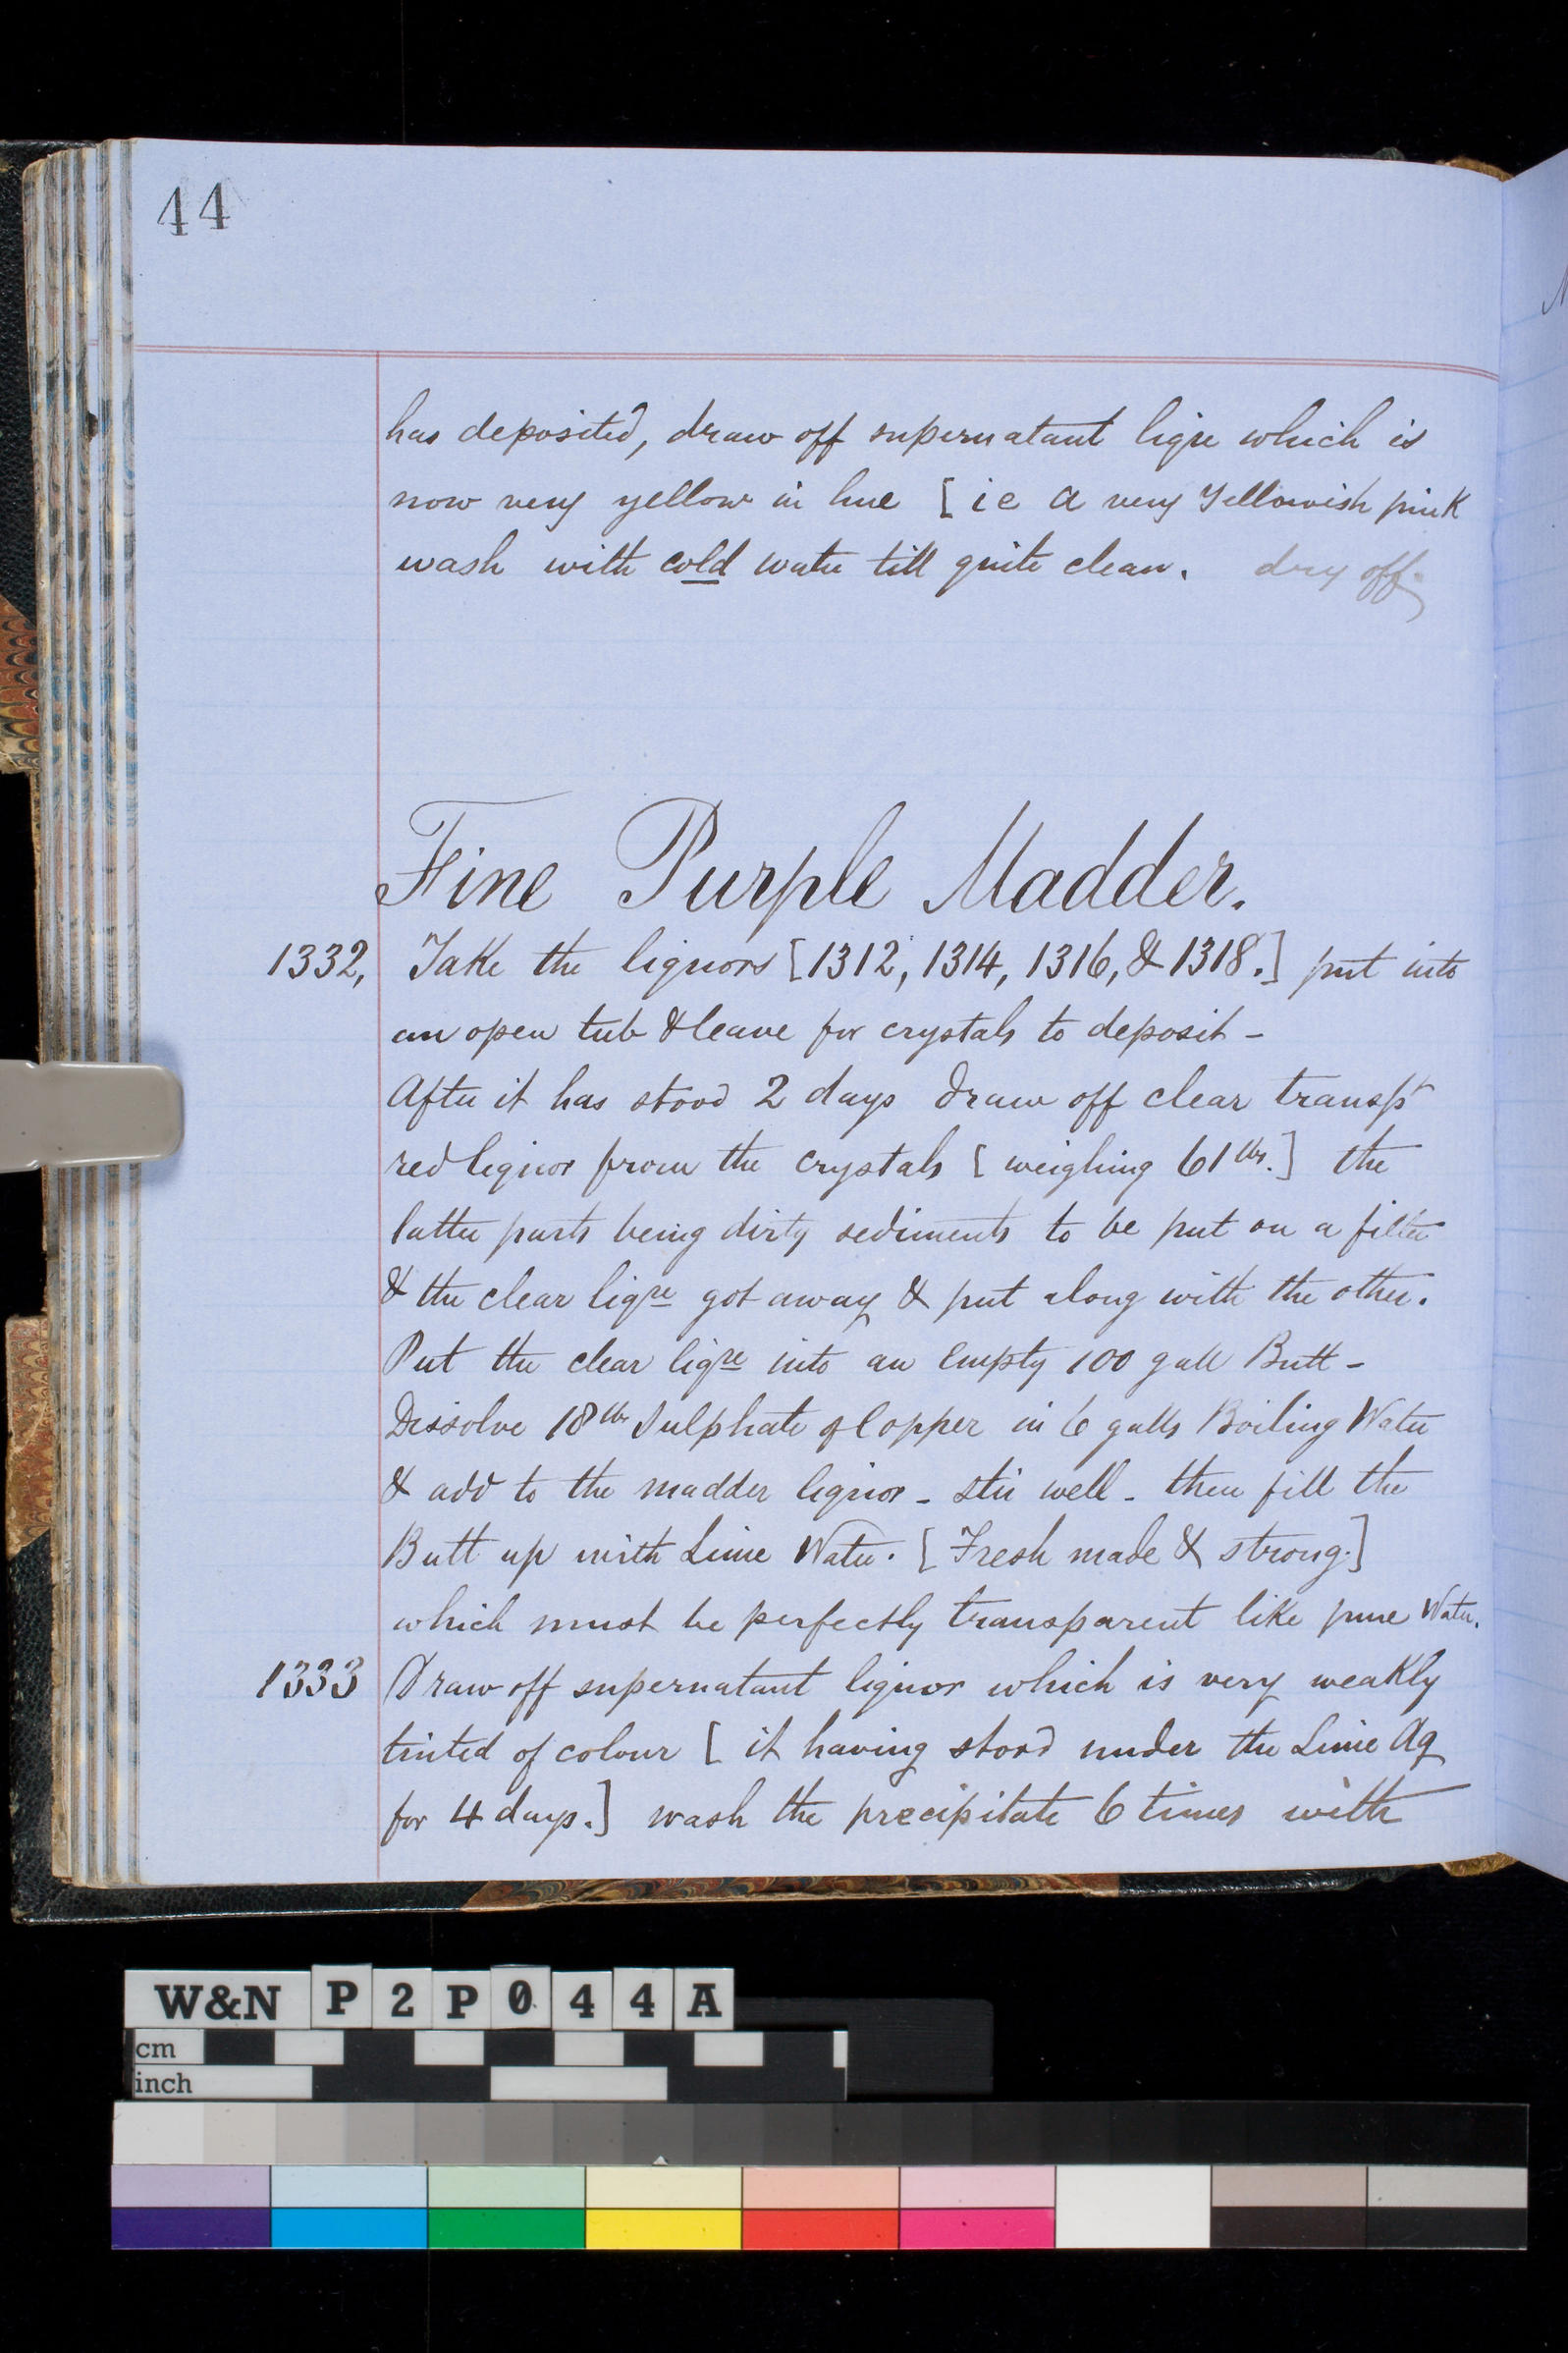 44
has deposited, draw off supernatant liqre which is
now very yellow in hue [ie a very Yellowish pink
wash with cold water till quite clean. dry off.
Fine Purple Madder.
1332, Take the liquors [1312, 1314, 1316, & 1318.] put into
an open tub & leave for crystals to deposit -
After it has stood 2 days draw off clear transpt
red liquor from the crystals [weighing 61 lbs.] the
latter parts being dirty sediments to be put on a filter
& the clear liqre got away & put along with the other.
Put the clear liqre into an empty 100 gall Butt -
Dissolve 18 lbs Sulphate of Copper in 6 galls Boiling Water
& add to the madder liquor - stir well - then fill the
Butt up with Lime Water. [Fresh made & strong.]
which must be perfectly transparent like pure Water.
1333 Draw off supernatant liquor which is very weakly
tinted of colour [it having stood under the Lime Aq
for 4 days.] wash the precipitate 6 times with
W&N P2P044A
cm
inch